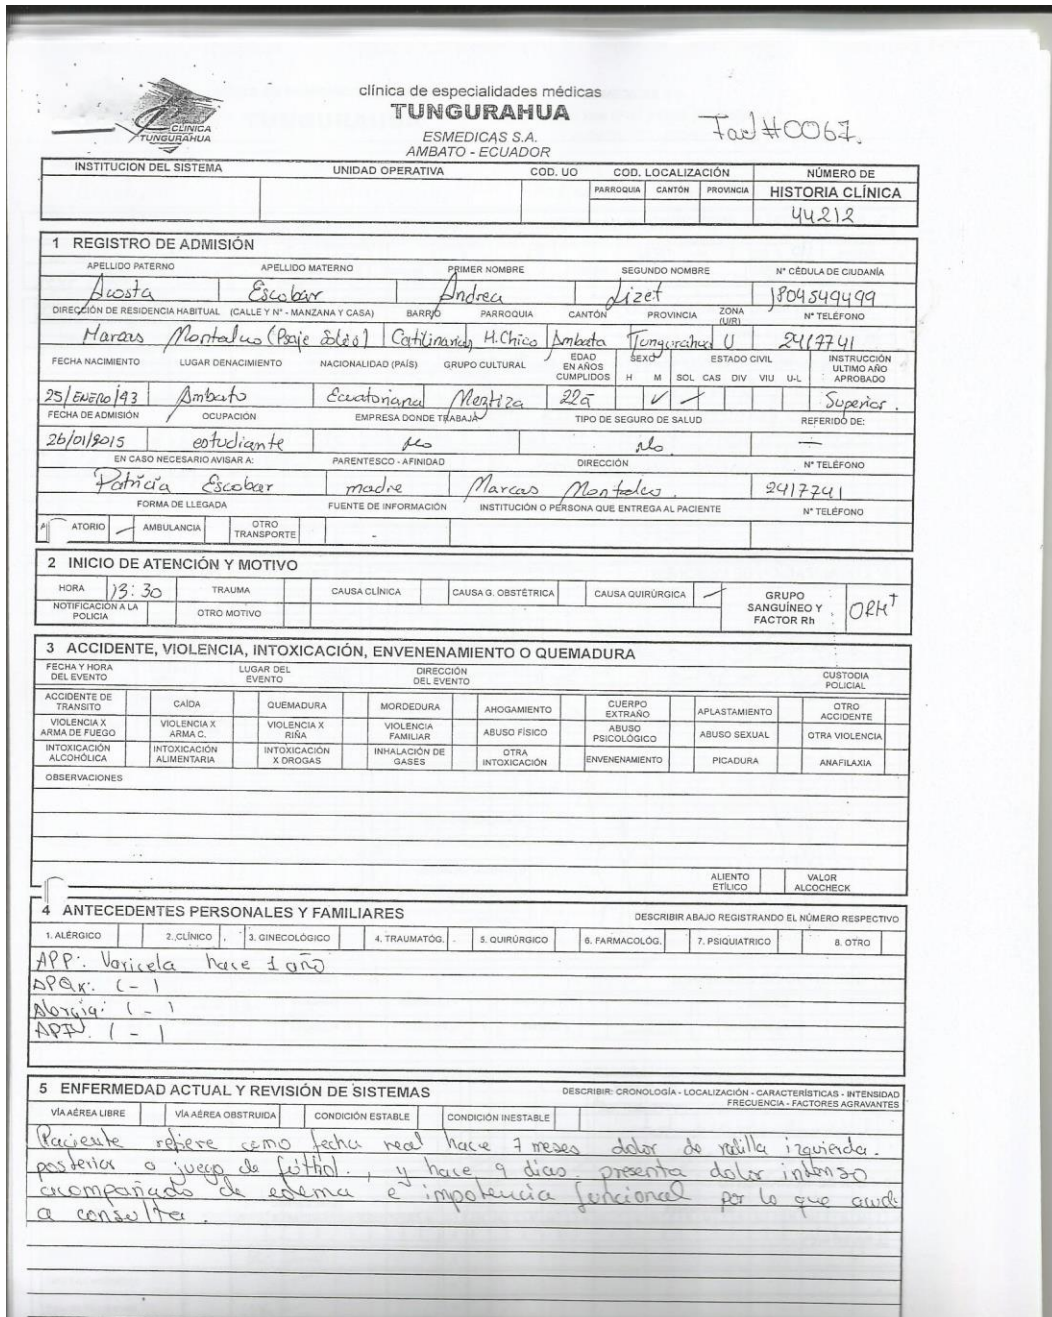 CLINICA
TUNGURAHUA
clínica de especialidades médicas
TUNGURAHUA
ESMEDICAS S.A.
AMBATO - ECUADOR
#0067.
INSTITUCION DEL SISTEMA UNIDAD OPERATIVA COD. UO COD. LOCALIZACIÓN NÚMERO DE
PARROQUIA CANTÓN PROVINCIA HISTORIA CLÍNICA
44212
1 REGISTRO DE ADMISIÓN
APELLIDO PATERNO APELLIDO MATERNO PRIMER NOMBRE SEGUNDO NOMBRE N° CÉDULA DE CIUDANÍA
Acosta Escobar Andrea Lizet 1804549499
DIRECCIÓN DE RESIDENCIA HABITUAL (CALLE Y N° - MANZANA Y CASA) BARRIO PARROQUIA CANTÓN PROVINCIA ZONA (U/R) N° TELÉFONO
Montalvo H.Chico Ambato Tungurahua U 2417741
FECHA NACIMIENTO LUGAR DENACIMIENTO NACIONALIDAD (PAÍS) GRUPO CULTURAL EDAD EN AÑOS CUMPLIDOS SEXO ESTADO CIVIL INSTRUCCIÓN ULTIMO AÑO APROBADO
H M SOL CAS DIV VIU U-L
25/ENERO/93 Ambato Ecuatoriana Mestiza 22a Superior.
FECHA DE ADMISIÓN OCUPACIÓN EMPRESA DONDE TRABAJA TIPO DE SEGURO DE SALUD REFERIDO DE:
26/01/2015 estudiante No No. -
EN CASO NECESARIO AVISAR A: PARENTESCO - AFINIDAD DIRECCIÓN N° TELÉFONO
Patricia Escobar madre Marcos Montalvo. 2417741
FORMA DE LLEGADA FUENTE DE INFORMACIÓN INSTITUCIÓN O PERSONA QUE ENTREGA AL PACIENTE N° TELÉFONO
ATORIO AMBULANCIA OTRO TRANSPORTE -
2 INICIO DE ATENCIÓN Y MOTIVO
HORA 13:30 TRAUMA CAUSA CLÍNICA CAUSA G. OBSTÉTRICA CAUSA QUIRÚRGICA GRUPO SANGUÍNEO Y FACTOR Rh ORH+
NOTIFICACIÓN A LA POLICIA OTRO MOTIVO
3 ACCIDENTE, VIOLENCIA, INTOXICACIÓN, ENVENENAMIENTO O QUEMADURA
FECHA Y HORA DEL EVENTO LUGAR DEL EVENTO DIRECCIÓN DEL EVENTO CUSTODIA POLICIAL
ACCIDENTE DE TRANSITO CAÍDA QUEMADURA MORDEDURA AHOGAMIENTO CUERPO EXTRAÑO APLASTAMIENTO OTRO ACCIDENTE
VIOLENCIA X ARMA DE FUEGO VIOLENCIA X ARMA C. VIOLENCIA X RIÑA VIOLENCIA FAMILIAR ABUSO FÍSICO ABUSO PSICOLÓGICO ABUSO SEXUAL OTRA VIOLENCIA
INTOXICACIÓN ALCOHÓLICA INTOXICACIÓN ALIMENTARIA INTOXICACIÓN X DROGAS INHALACIÓN DE GASES OTRA INTOXICACIÓN ENVENENAMIENTO PICADURA ANAFILAXIA
OBSERVACIONES
ALIENTO ETÍLICO VALOR ALCOCHECK
4 ANTECEDENTES PERSONALES Y FAMILIARES DESCRIBIR ABAJO REGISTRANDO EL NÚMERO RESPECTIVO
1. ALÉRGICO 2. CLÍNICO 3. GINECOLÓGICO 4. TRAUMATÓG. 5. QUIRÚRGICO 6. FARMACOLÓG. 7. PSIQUIATRICO 8. OTRO
APP: Varicela hace 1 año
APQx: (-)
Alergia: (-)
APF: (-)
5 ENFERMEDAD ACTUAL Y REVISIÓN DE SISTEMAS DESCRIBIR: CRONOLOGÍA - LOCALIZACIÓN - CARACTERÍSTICAS - INTENSIDAD
FRECUENCIA - FACTORES AGRAVANTES
VÍA AÉREA LIBRE VÍA AÉREA OBSTRUIDA CONDICIÓN ESTABLE CONDICIÓN INESTABLE
Paciente refiere como fecha real hace 7 meses dolor de rodilla izquierda.
posterior a juego de fútbol., y hace 9 días presenta dolor intenso
acompañado de edema e impotencia funcional por lo que acude
a consulta.